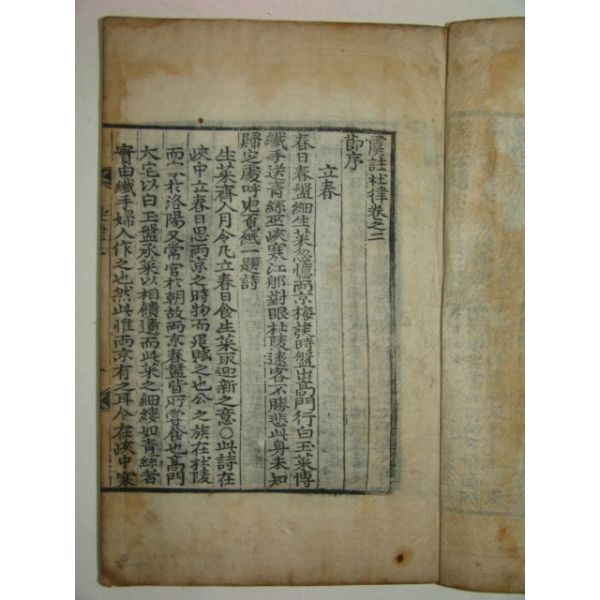 虞註杜律卷之二
節序
立春
春日春盤細生菜忽憶兩京梅發時盤出高門行白玉菜傳
纖手送青絲巫峽寒江那對眼杜陵遠客不勝悲此身未知
歸定處呼兒覓紙一題詩
生菜齊人月令凡立春日食生菜取迎新之意○此詩在
峽中立春日思兩京之時物而追賦之也公之族在杜陵
而家於洛陽又常官於朝故兩京春盤皆所嘗食也高門
大宅以白玉盤承菜以相饋遺而此菜之細縷如青絲者
實由纖手婦人作之也然此惟兩京有之耳今在峽中寒